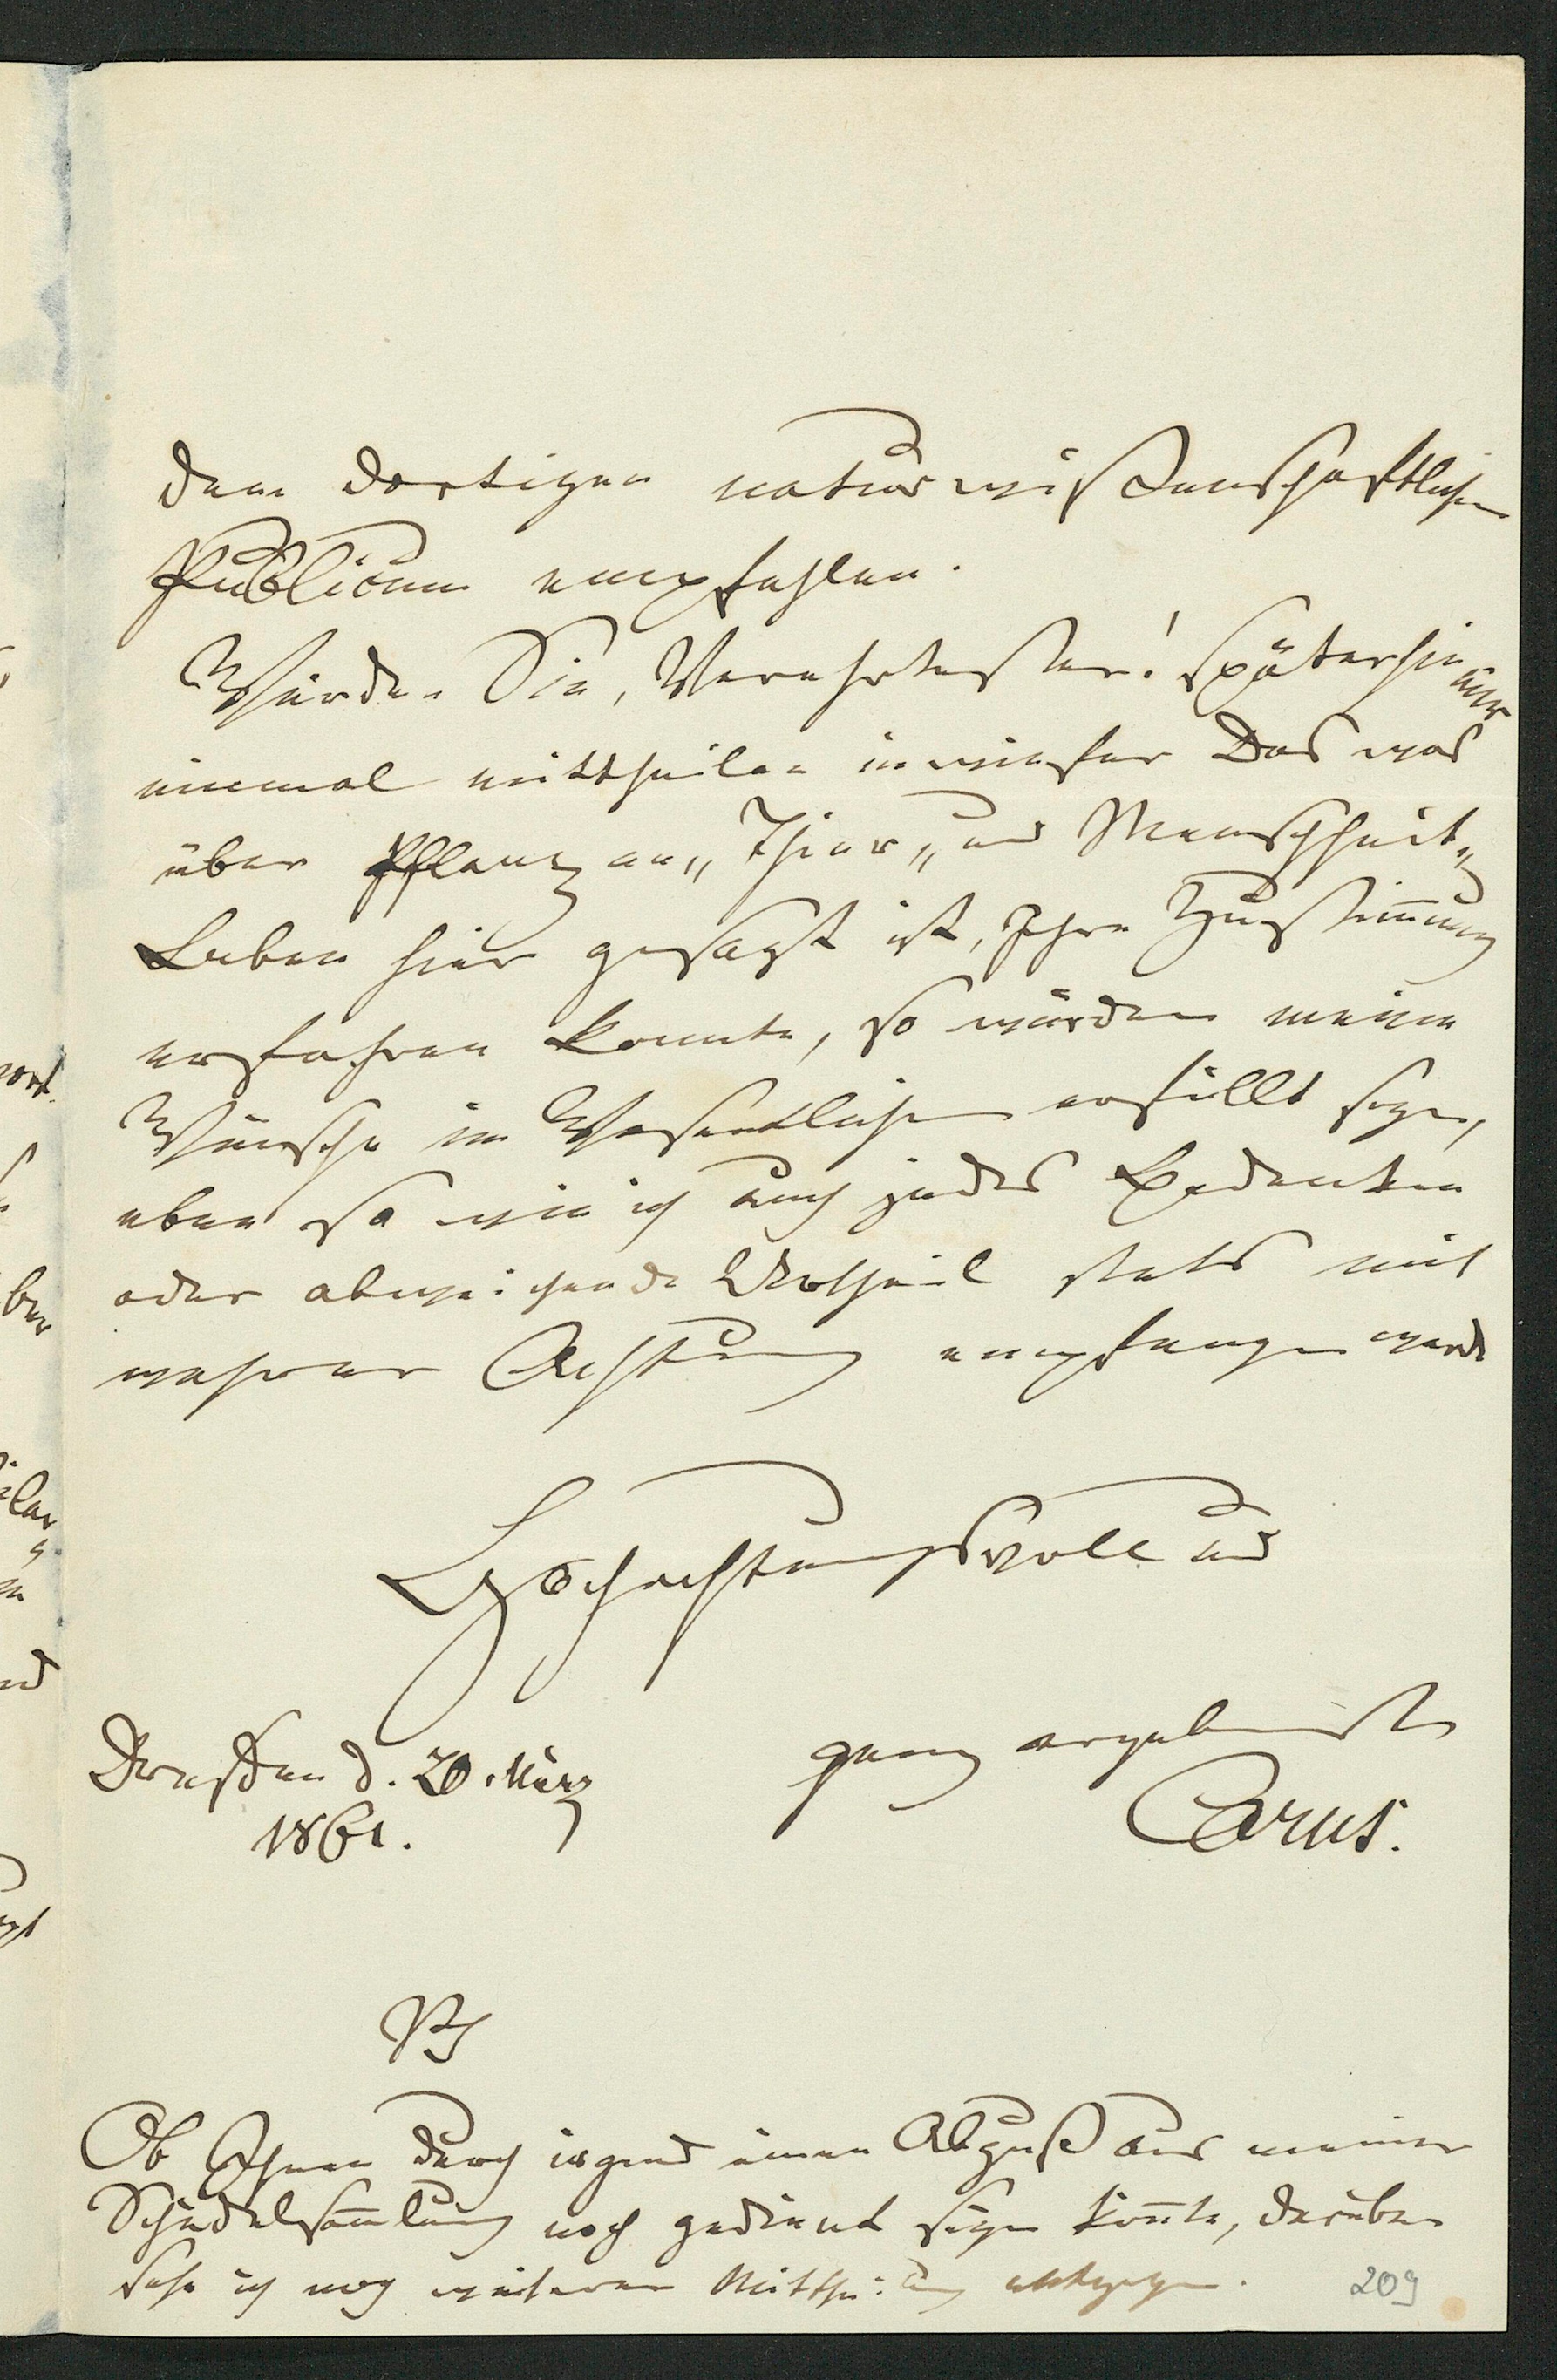 dem dortigen naturwißenschaftlichen
Publicum empfehlen.
Würden Sie, Verehrtester! späterhin mir
einmal mittheilen inwiefern Das was
über Pflanzen„ Thier„ und Menschheit„
Leben hier gesagt ist, Ihre Zustimmung
erfahren konnte, so würden meine
Wünsche im Wesentlichen erfüllt seyn,
eben so wie ich auch jedes Bedenken
oder abweichende Urtheil stets mit
wahrer Achtung empfangen werde
Hochachtungsvoll und
ganz ergebenst
Dresden d. 20. März
1861.
Carus.
PS
Ob Ihnen durch irgend einen Abguß aus meiner
Schädelsam̄lung noch gedient seyn kön̄te, darüber
sehe ich noch weiteren Mittheilung entgegen.
209